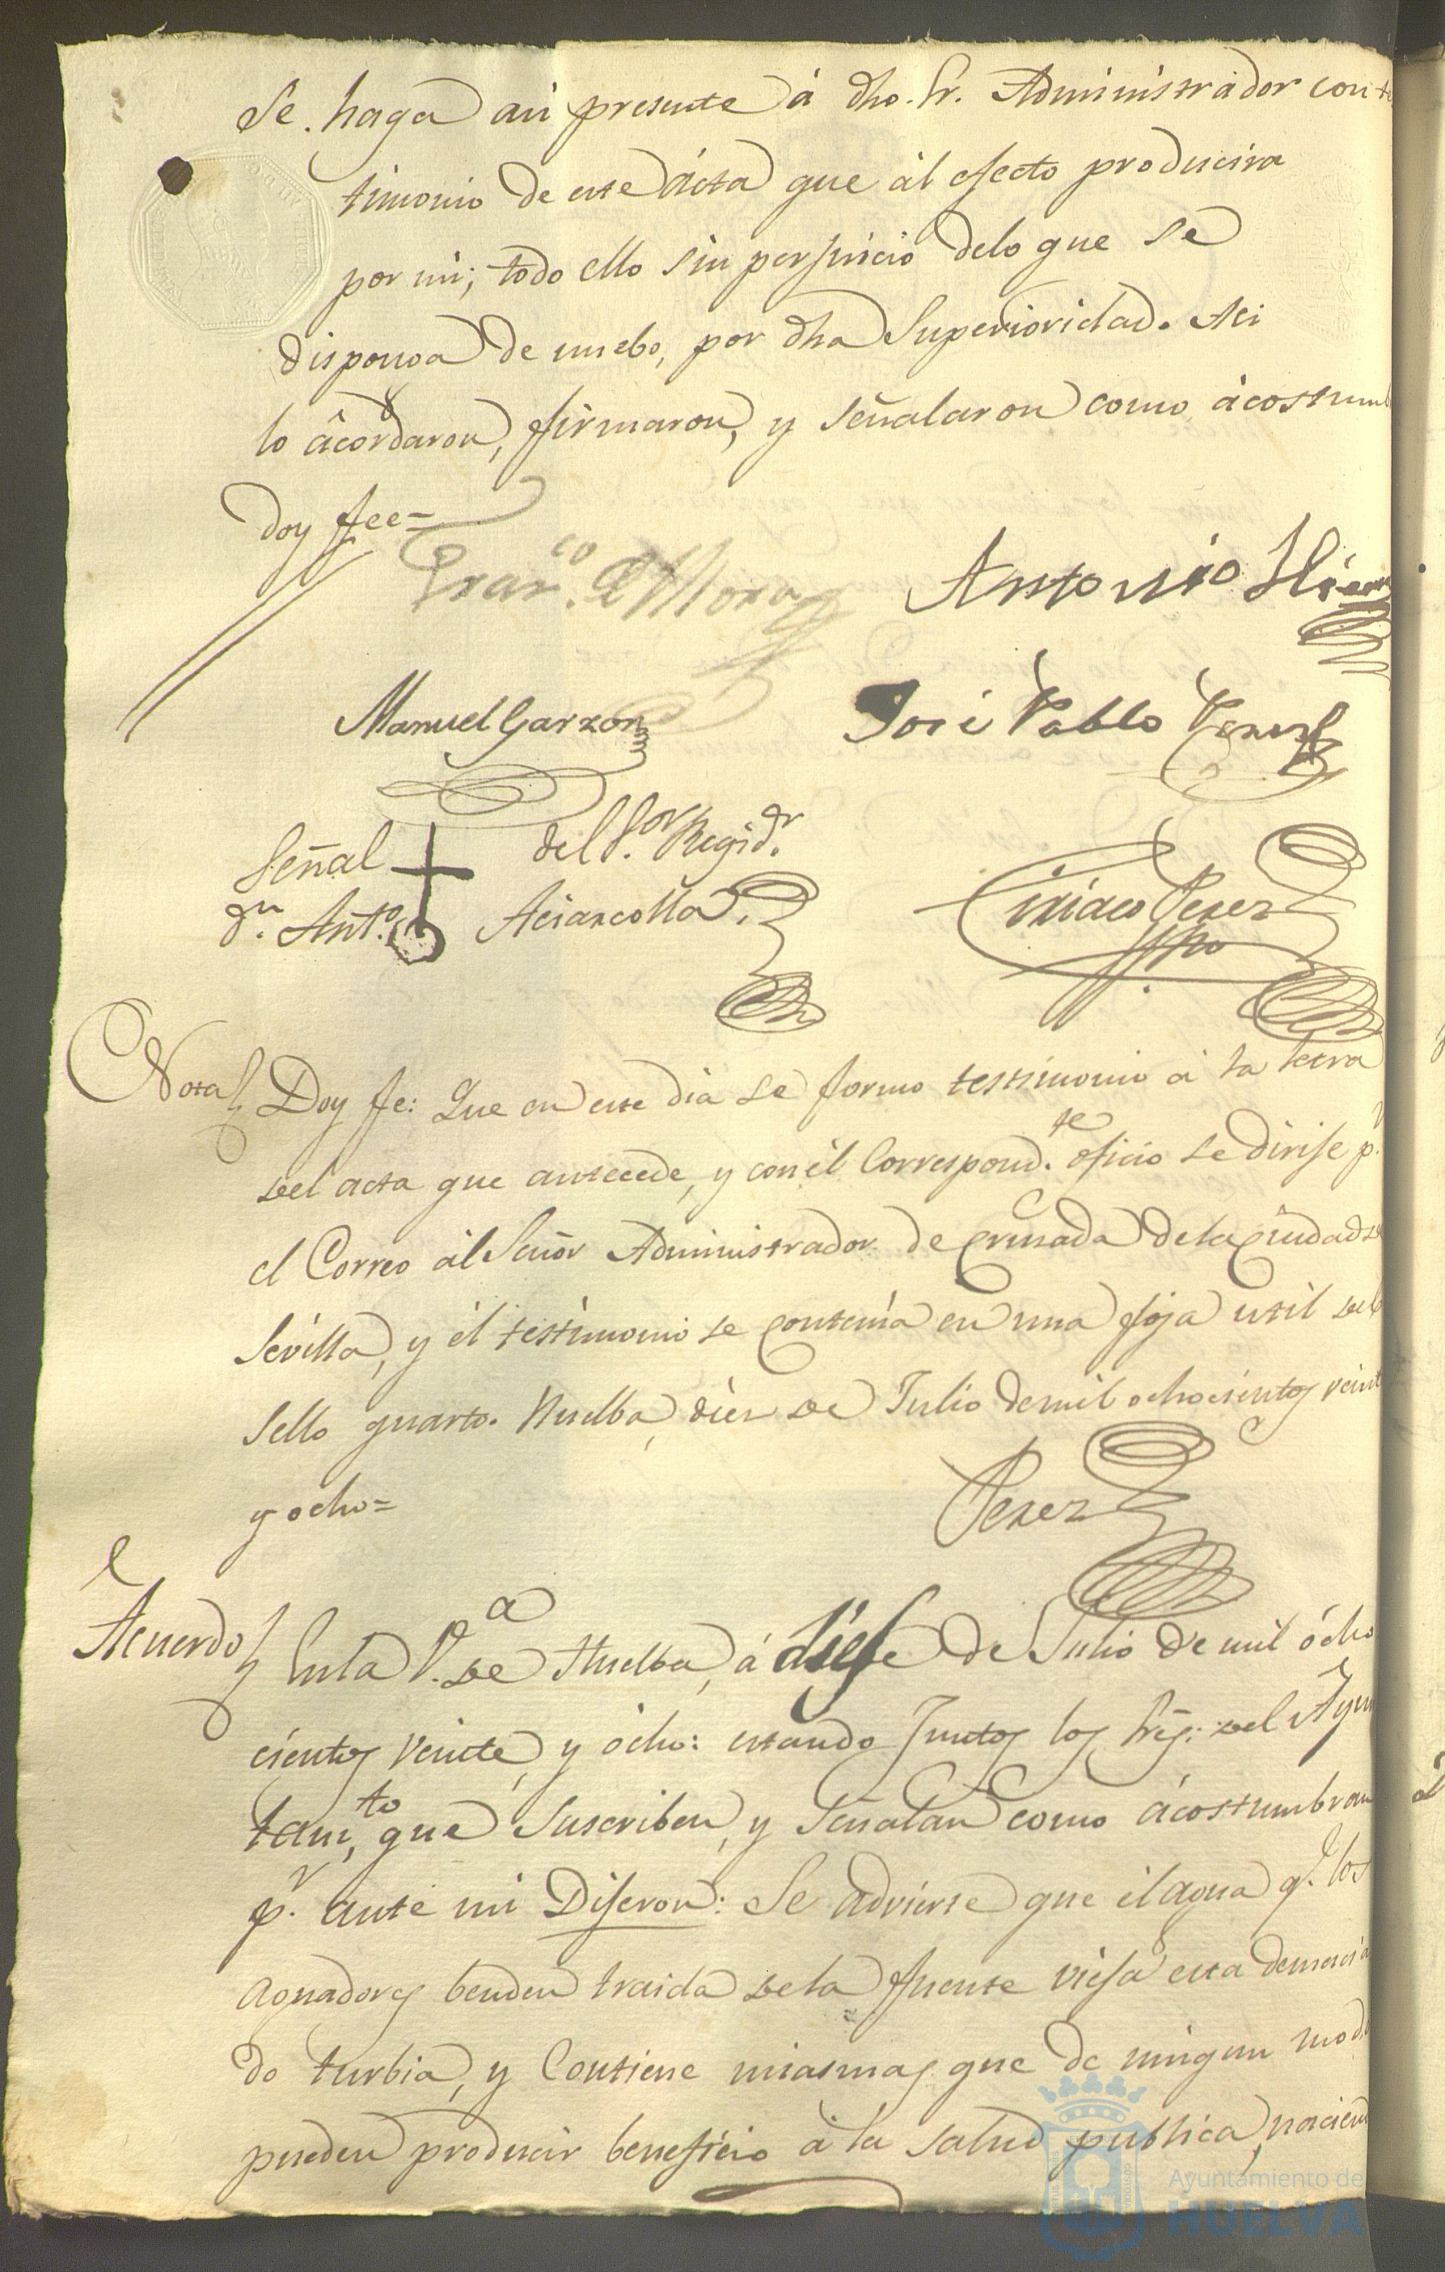 Se. haga asi presente á dho. Sr. Administrador con te
timonio de este ácta que ál efecto producira
por mi; todo ello sin perjuicio delo que se
disponga de nuebo, por dha Superioridad. Asi
lo ácordaron, firmaron, y señalaron como ácostumb
doy fee=
Fran.co de Mora
Antonio
Manuel Garzon
José Pablo Perez
Señal del S.or Regid.r
dn. Ant.o
Ciriaco Perez
Sno
Nota Doy fe: Que en este dia se formo testimonio á la letra
del acta que antecede, y con él Correspond.te oficio se dirije p.r
el Correo ál Señor Administrador de Cruzada dela Ciudad de
Sevilla, y él testimonio se contenia en una foja util del
sello quarto. Huelba, diez de Julio demil ochocientos veint
y ocho=
Perez
Acuerdo Enla V.a de Huelba, á diese de Julio de mil ócho
cientos veinte, y ócho: estando Juntos los Sres. del Ayun
tami.to que suscriben, y señalan como ácostumbran
p.r ante mi Dijeron: Se advierte que él agua q.e los
aguadores benden traida dela fuente vieja esta demacia
do turbia, y Contiene miasmas que de ningun modo
pueden producir beneficio á la salud publica,
Ayuntamiento de
HUELVA